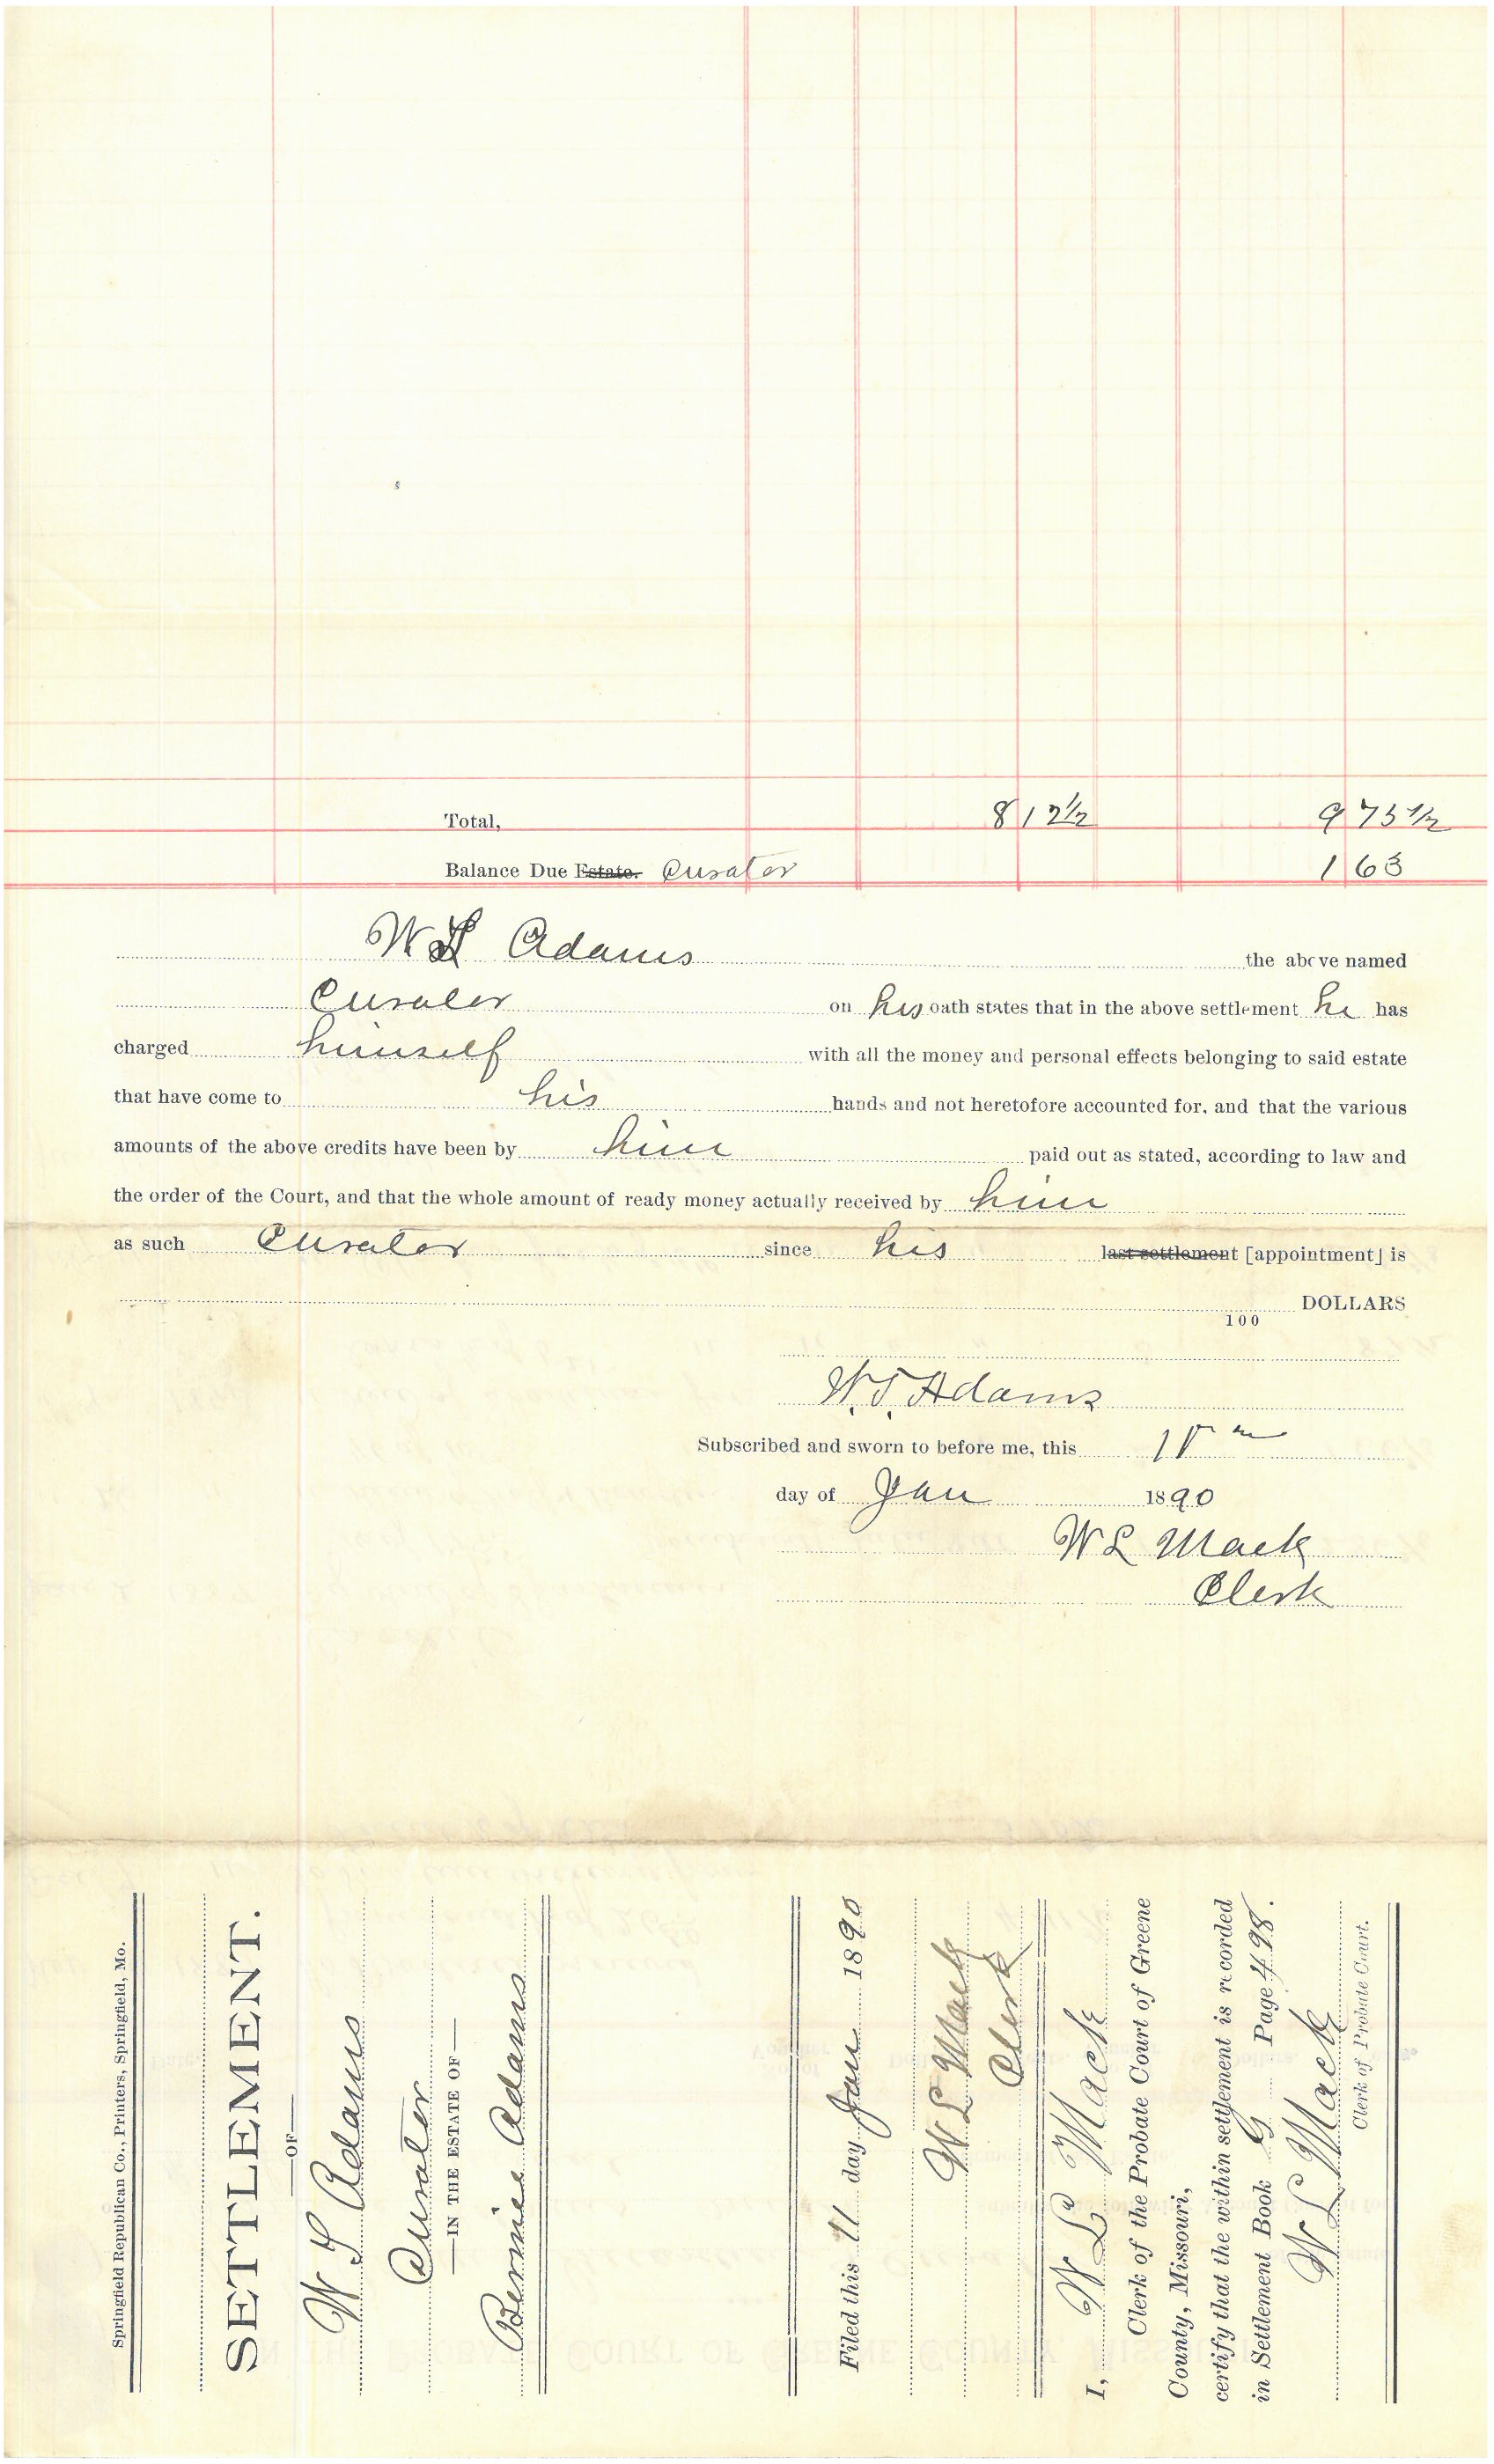 Total, 8 12½ 9 75½
Balance Due Estate. Curator 1 63
W S Adams the above named
Curator on his oath states that in the above settlement he has
charged himself with all the money and personal effects belonging to said estate
that have come to his hands and not heretofore accounted for, and that the various
amounts of the above credits have been by him paid out as stated, according to law and
the order of the Court, and that the whole amount of ready money actually received by him
as such Curator since his last settlement [appointment] is
DOLLARS
100
W. S. Adams
Subscribed and sworn to before me, this
day of Jan 1890
W L Mack
Clerk
Springfield Republican Co., Printers, Springfield, Mo.
SETTLEMENT.
—OF—
W S Adams
Curator
—IN THE ESTATE OF—
Bernice Adams
Filed this 11 day Jan 1890
W L Mack
Clerk
I, W L Mack
Clerk of the Probate Court of Greene
County, Missouri,
certify that the within settlement is recorded
in Settlement Book G Page 498.
W L Mack
Clerk of Probate Court.